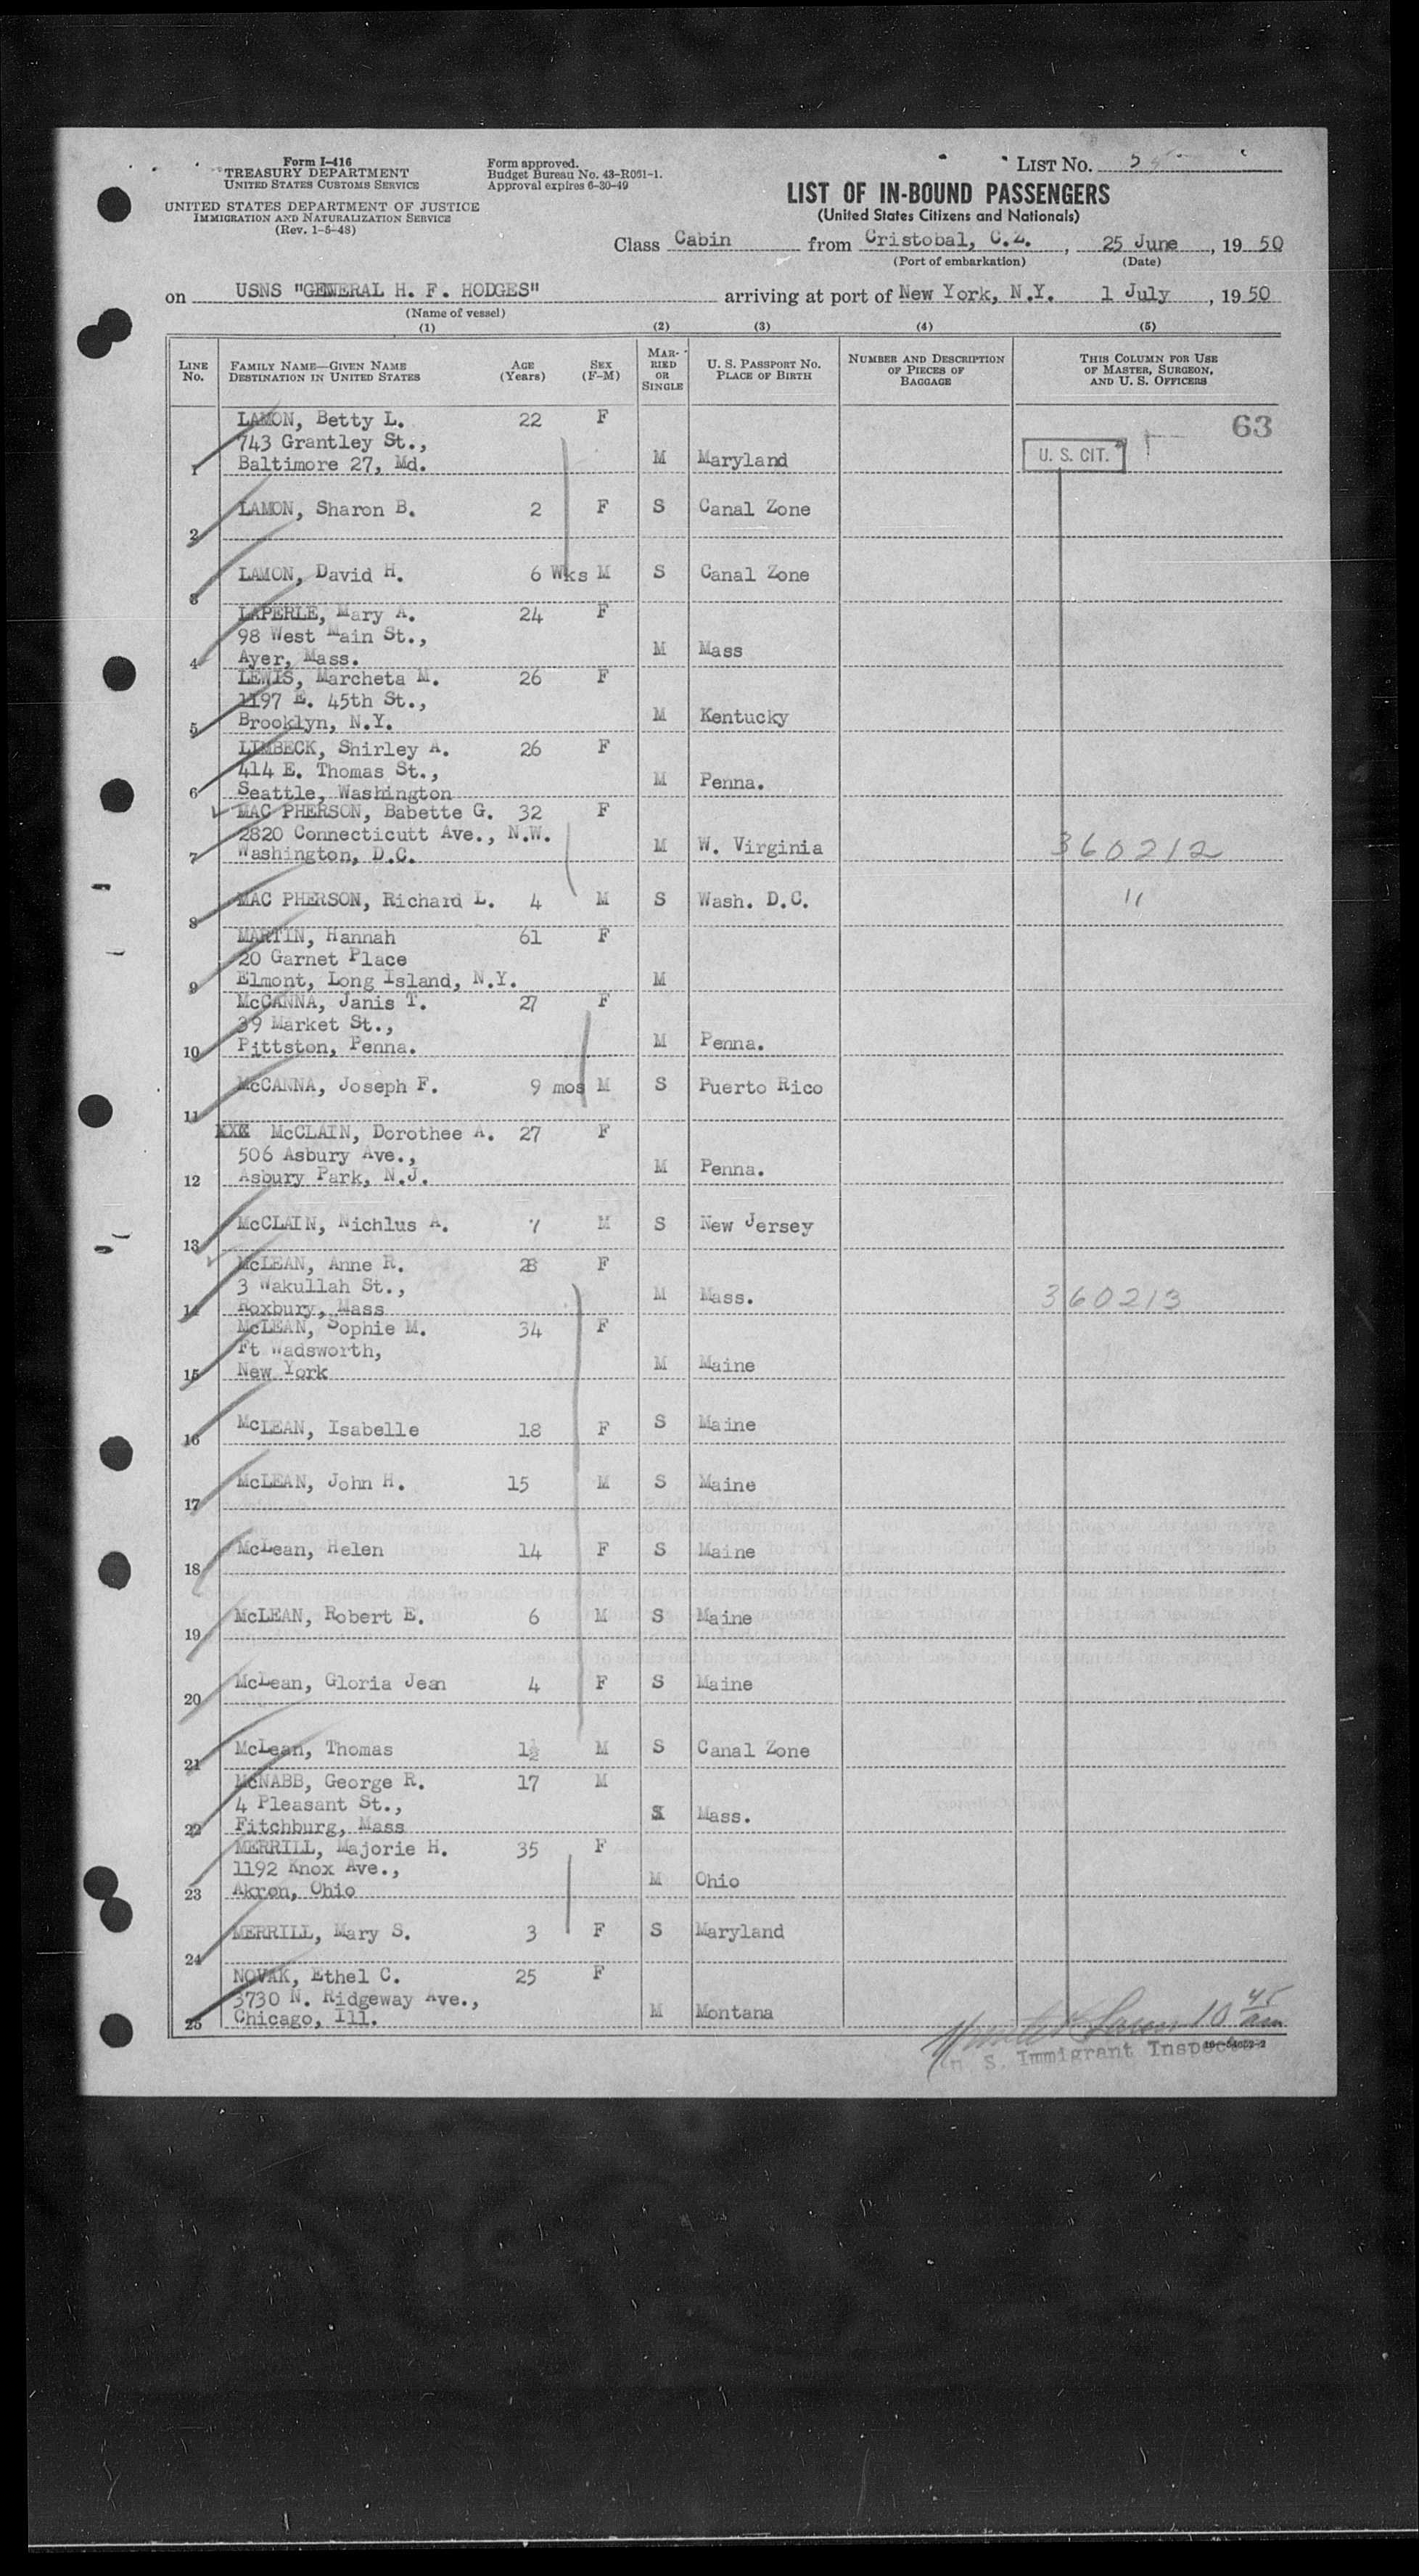 Form I-416
TREASURY DEPARTMENT
UNITED STATES CUSTOMS SERVICE
UNITED STATES DEPARTMENT OF JUSTICE
IMMIGRATION AND NATURALIZATION SERVICE
(Rev. 1-5-48)
Form approved.
Budget Bureau No. 43-R061-1.
Approval expires 6-30-49
LIST No.
LIST OF IN-BOUND PASSENGERS
(United States Citizens and Nationals)
Class Cabin from Cristobal, C.Z., 25 June, 1950
(Port of embarkation) (Date)
on USNS "GENERAL H. F. HODGES" arriving at port of New York, N.Y. 1 July, 1950
(Name of vessel)
(1) (2) (3) (4) (5)
LINE No. FAMILY NAME—GIVEN NAME DESTINATION IN UNITED STATES AGE (Years) SEX (F-M) MARRIED OR SINGLE U. S. PASSPORT No. PLACE OF BIRTH NUMBER AND DESCRIPTION OF PIECES OF BAGGAGE THIS COLUMN FOR USE OF MASTER, SURGEON, AND U. S. OFFICERS
63
LAMON, Betty L. 22 F
743 Grantley St.,
1 Baltimore 27, Md. M Maryland U. S. CIT.
2 LAMON, Sharon B. 2 F S Canal Zone
3 LAMON, David H. 6 Wks M S Canal Zone
LAPERLE, Mary A. 24 F
98 West Main St.,
4 Ayer, Mass. M Mass
LEWIS, Marcheta M. 26 F
1197 E. 45th St.,
5 Brooklyn, N.Y. M Kentucky
LIMBECK, Shirley A. 26 F
414 E. Thomas St.,
6 Seattle, Washington M Penna.
MAC PHERSON, Babette G. 32 F
2820 Connecticutt Ave., N.W.
7 Washington, D.C. M W. Virginia 360212
8 MAC PHERSON, Richard L. 4 M S Wash. D.C. "
MARTIN, Hannah 61 F
20 Garnet Place
9 Elmont, Long Island, N.Y. M
McCANNA, Janis T. 27 F
39 Market St.,
10 Pittston, Penna. M Penna.
11 McCANNA, Joseph F. 9 mos M S Puerto Rico
XXX McCLAIN, Dorothee A. 27 F
506 Asbury Ave.,
12 Asbury Park, N.J. M Penna.
13 McCLAIN, Nichlus A. 7 M S New Jersey
McLEAN, Anne R. 28 F
3 Wakullah St.,
14 Roxbury, Mass M Mass. 360213
McLEAN, Sophie M. 34 F
Ft Wadsworth,
15 New York M Maine
16 McLEAN, Isabelle 18 F S Maine
17 McLEAN, John H. 15 M S Maine
18 McLean, Helen 14 F S Maine
19 McLEAN, Robert E. 6 M S Maine
20 McLean, Gloria Jean 4 F S Maine
21 McLean, Thomas 1½ M S Canal Zone
McNABB, George R. 17 M
4 Pleasant St.,
22 Fitchburg, Mass S Mass.
MERRILL, Majorie H. 35 F
1192 Knox Ave.,
23 Akron, Ohio M Ohio
24 MERRILL, Mary S. 3 F S Maryland
NOVAK, Ethel C. 25 F
3730 N. Ridgeway Ave.,
25 Chicago, Ill. M Montana
10 45 am
S. Immigrant Inspec
16—54652-2